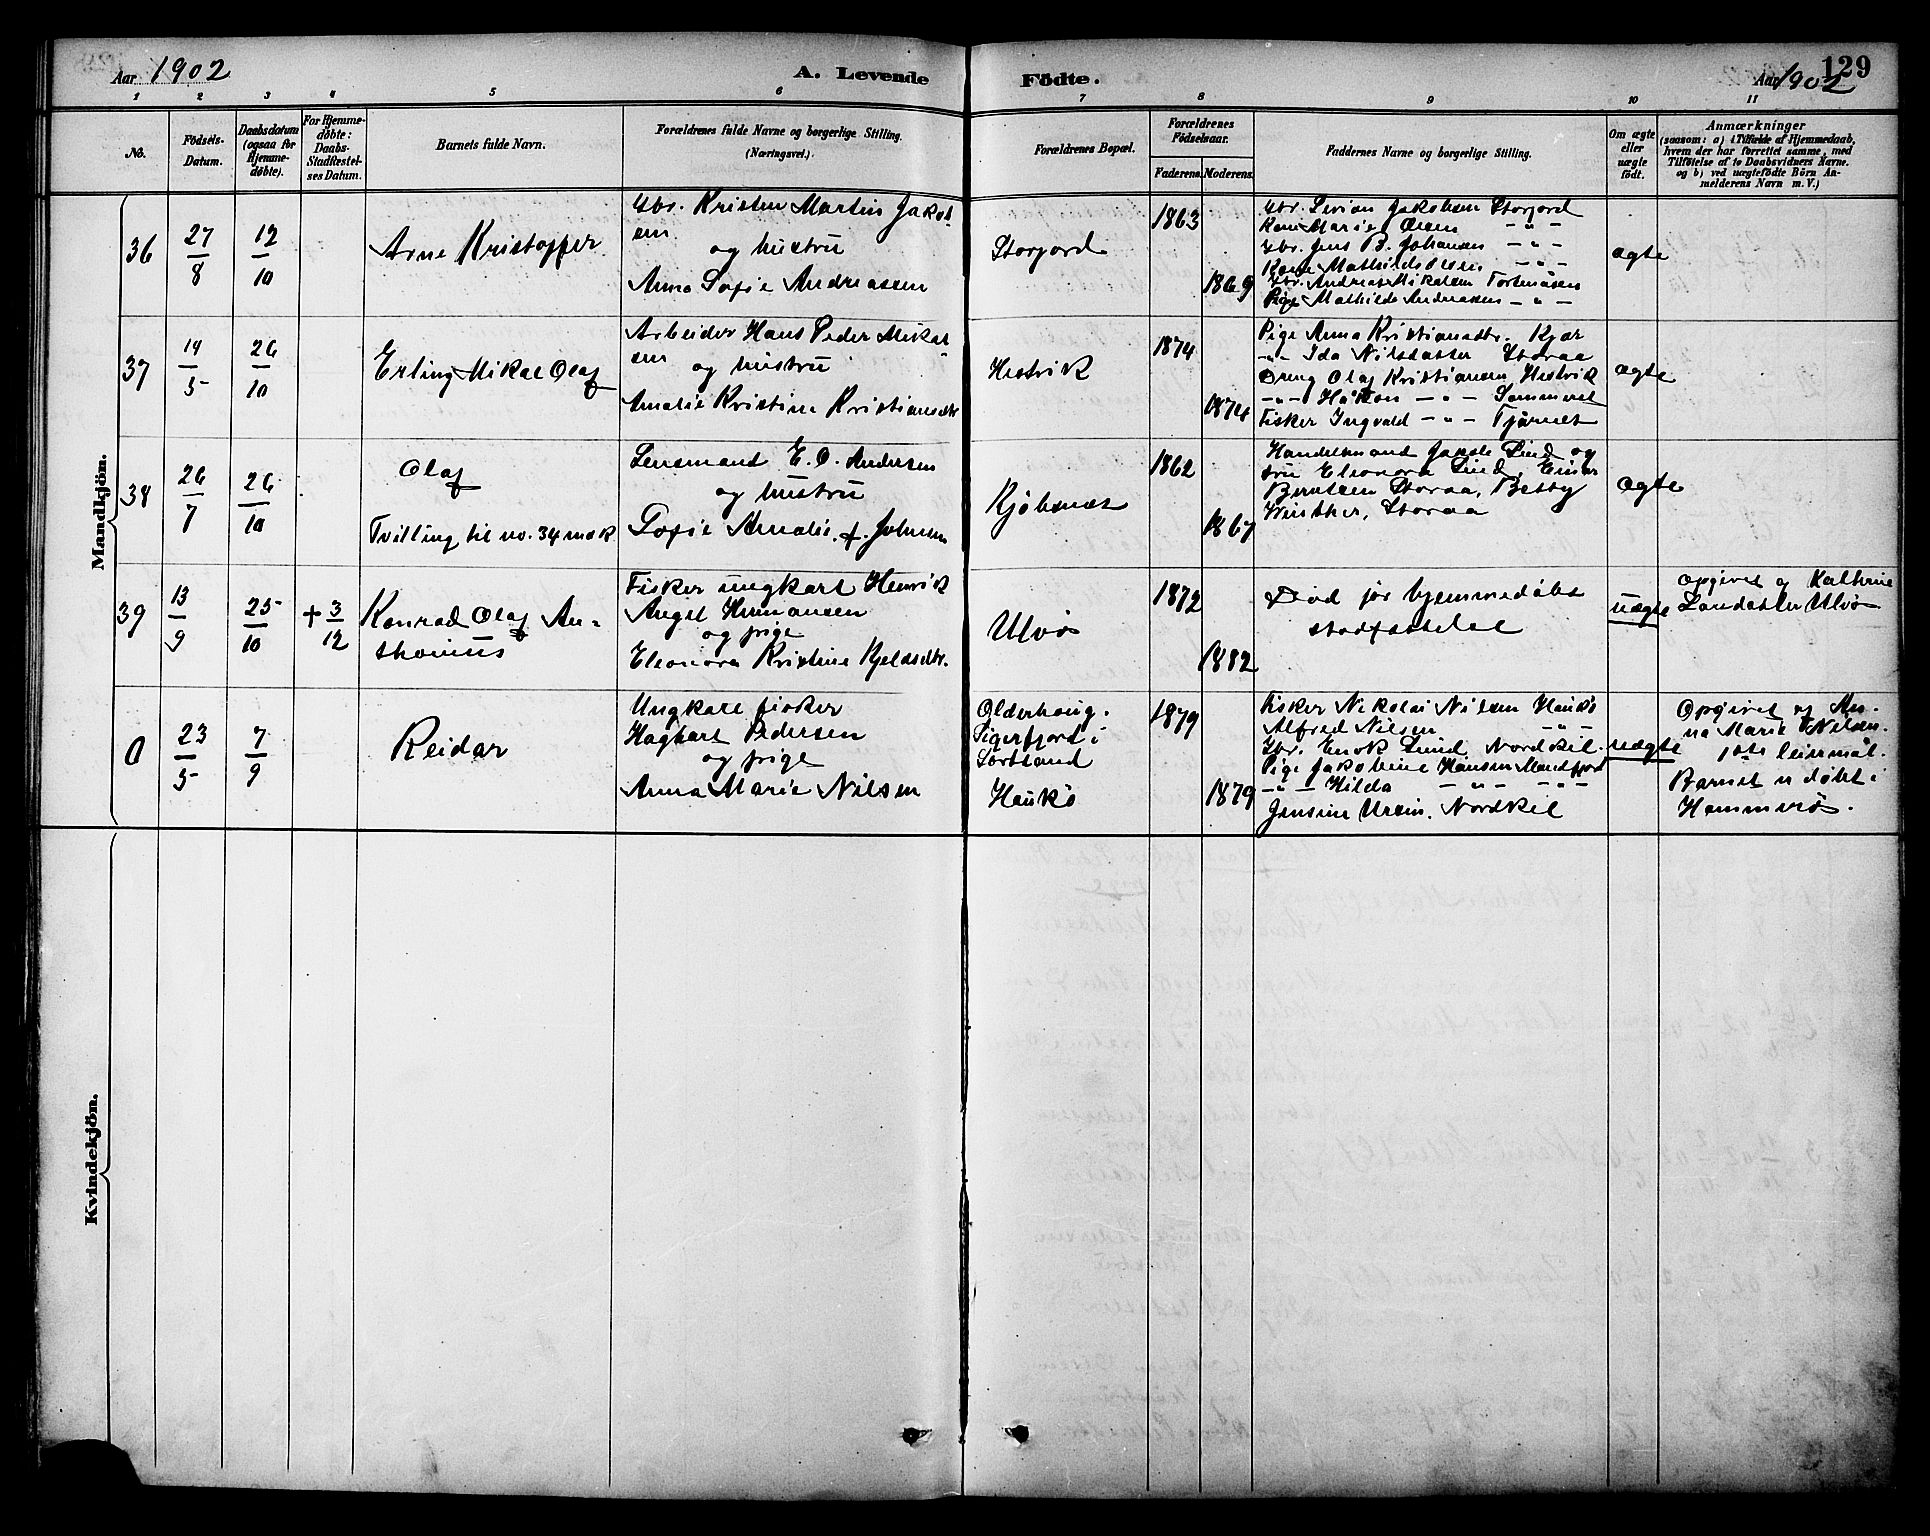 Aar 1902
A. Levende
Födte.
Aar 1902
129
1 2 3 4 5 6 7 8 9 10 11
No.
Födsels-
Datum.
Daabsdatum
(ogsaa for
Hjemme-
döbte).
For Hjemme-
döbte:
Daabs-
Stadfæstel-
ses Datum.
Barnets fulde Navn.
Forældrenes fulde Navne og borgerlige Stilling.
(Næringsvei.)
Forældrenes Bopæl.
Forældrenes
Födselsaar.
Faderens. Moderens.
Faddernes Navne og borgerlige Stilling.
Om ægte
eller
uægte
födt.
Anmærkninger
(saasom: a) i Tilfælde af Hjemmedaab,
hvem der har forrettet samme, med
Tilföielse af to Daabsvidners Navne.
og b) ved uægtefödte Börn An-
melderens Navn m. V.)
Mandkjön.
36
27/8
12/10
Arne Kristoffer
Gbr. Kristen Martin Jakob-
sen
og hustru
Anna Sofie Andreassen
Storjord
1863
1869
Gbr. Jakobsen Storjord
Kone Marie Olsen - " -
Gbr. Jens B. Johansen - " -
Kone Mathilde Olsen - " -
Gbr. Andreas Mikalsen
Pige Mathilde Andreassen - " -
ægte
37
14/5
26/10
Erling Mikal Olaf
Arbeider Hans Peder Mikal-
sen
og hustru
Amalie Kristine Kristiansdtr
Hestvik
1874
1874
Pige Anna Kristiansdtr. Kjær
- " - Ida Nilsdatter Storaa
Dreng Olaf Kristiansen Hestvik
- " - Håkon - " - Sommerset
Fisker Ingvald - " - Tjærnes
ægte
38
26/7
26/10
Olaf
Tvilling til no. 34 mæk
Lensmand E. O. Andersen
og hustru
Sofie Amalie, f. Johnsen
Kjöbsnæs
1862
1867
Handelsmand Lind og
fru Eleonora Lind, Einar
Berntsen Storaa, Betsy
Winther, Storaa
ægte
39
13/9
25/10
+ 3/12
Konrad Olaf An-
thonius
Fisker ungkarl Henrik
Angel Hermansen
og pige
Eleonora Kristine Kjeldsdtr.
Ulvö
1872
1882
Död før hjemmedåbs
stadfæstelse
uægte
Opgivet af Kathrine
Zandatter Ulvö
0
23/5
7/9
Reidar
Ungkarl fisker
Hagbart Pedersen
og pige
Anna Marie Nilsen
Olderhaug.
Sigerfjord i
Sortland
Haukö
1879
1879
Fisker Nikolai Nilsen Haukö
Alfred Nilsen - " -
Gbr. Enok Lund Nordkil.
Pige Jakobine Hansen Mandfjord
- " - Hilda - " - - " -
Jensine Ursin. Nordkil
uægte
Opgivet af An-
na Marie Nilsen.
1ste leiermål.
Barnet er döbt i
Hammerö.
Kvindekjön.